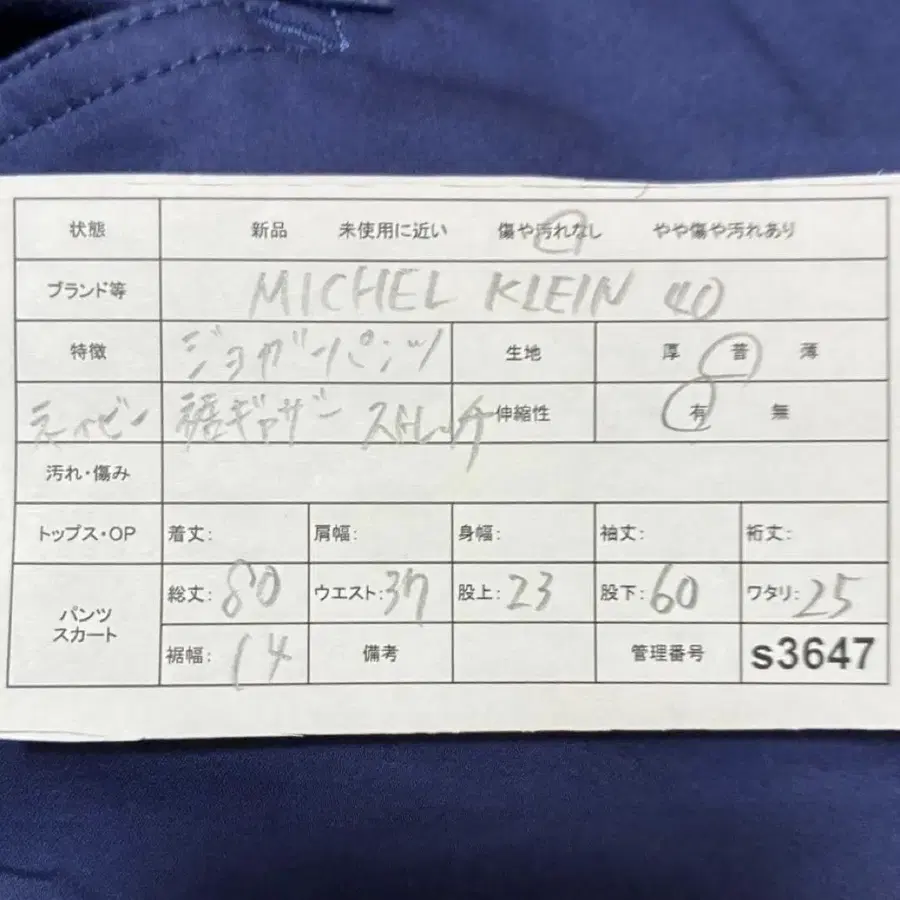 状態 新品 未使用に近い 傷や汚れなし やや傷や汚れあり
ブランド等 MICHEL KLEIN 40
特徴 ジョガーパンツ 生地 厚 普 薄
ネイビー 裾ギャザー ストレッチ 伸縮性 有 無
汚れ・傷み
トップス・OP 着丈: 肩幅: 身幅: 袖丈: 裄丈:
パンツ スカート 総丈: 80 ウエスト: 37 股上: 23 股下: 60 ワタリ: 25
裾幅: 14 備考 管理番号 s3647